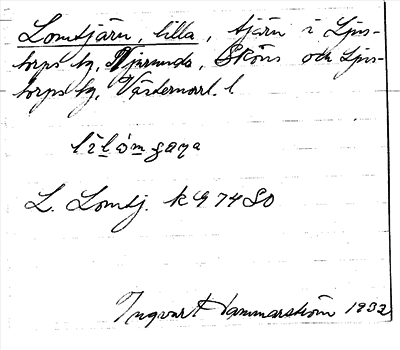 Lomtjärn, lilla, tjärn i Ljus-
torps sg, Njurunda, Sköns och Ljus-
torps sg, Västernorrl. l
L. Lomtj. k G 7480
Ingvar Hammarström 1932